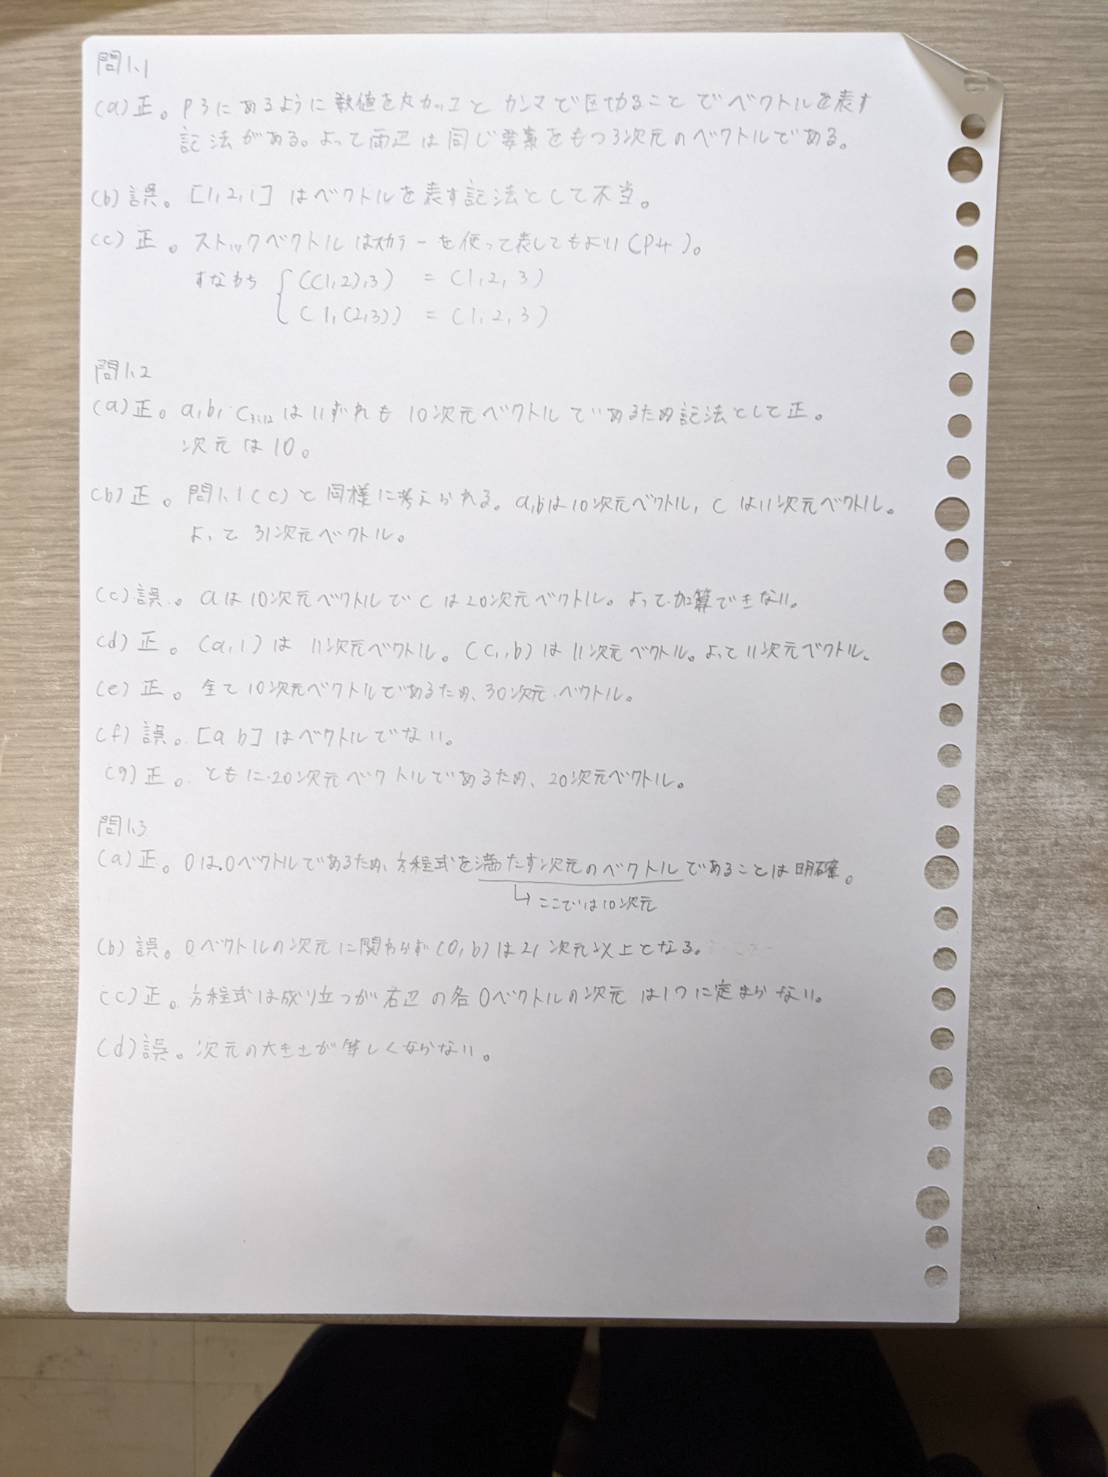 問1.1
(a) 正。P3にあるように数値を丸カッコとカンマで区切ることでベクトルを表す
記法がある。よって両辺は同じ要素をもつ3次元のベクトルである。
(b) 誤。[1,2,1] はベクトルを表す記法として不当。
(c) 正。ストックベクトルはスカラーを使って表してもよい(P4)。
すなわち ((1,2),3) = (1,2,3)
(1,(2,3)) = (1,2,3)
問1.2
(a) 正。a,b,c3:12はいずれも10次元ベクトルであるため記法として正。
次元は10。
(b) 正。問1.1(c)と同様に考えられる。a,bは10次元ベクトル, cは11次元ベクトル。
よって31次元ベクトル。
(c) 誤。aは10次元ベクトルでcは20次元ベクトル。よって加算できない。
(d) 正。(a,1)は11次元ベクトル。(c1,b)は11次元ベクトル。よって11次元ベクトル。
(e) 正。全て10次元ベクトルであるため、30次元ベクトル。
(f) 誤。[a b]はベクトルでない。
(g) 正。ともに20次元ベクトルであるため、20次元ベクトル。
問1.3
(a) 正。0は0ベクトルであるため、方程式を満たす次元のベクトルであることは明確。
↳ここでは10次元
(b) 誤。0ベクトルの次元に関わらず(0,b)は21次元以上となる。
(c) 正。方程式は成り立つが右辺の各0ベクトルの次元は1つに定まらない。
(d) 誤。次元の大きさが等しくならない。